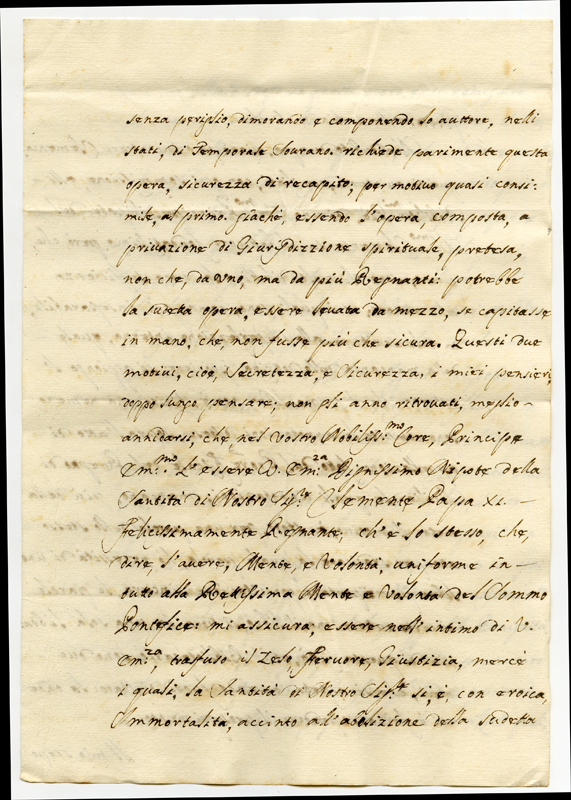 senza periglio, dimorando e componendo lo auttore, nelli
stati, di Temporale Sovrano. richiede parimente questa
opera, sicurezza di recapito; per motivo quasi consi:
mile, al primo. giachè, essendo l'opera, composta, a
privazione di Giurisdizzione spirituale, pretesa,
non che, da uno, ma da più Regnanti: potrebbe
la sudetta opera, essere levata da mezzo, se capitasse
in mano, che, non fusse più che sicura. Questi due
motivi, cioè, Secretezza, e Sicurezza, i miei pensieri,
doppo lungo pensare; non gli anno ritrovati, meglio
annidarsi, che, nel Vostro Nobiliss:mo Core, Principe
Em:mo. L'essere V. Em:za Dignissimo Nipote della
Santità di Nostro Sig:re Clemente Papa XI. –
felicissimamente Regnante, ch'è lo stesso, che,
dire, l'avere, Mente, e Volontà, uniforme in-
tutto alla Rettissima Mente e Volontà del Sommo
Pontefice: mi assicura, essere nell'intimo di V.
Em:za, trasfuso il Zelo, Fervore, Giustizia, mercè
i quali, la Santità di Nostro Sig:re si, è, con eroica,
Immortalità, accinto all'abolizione della sudetta